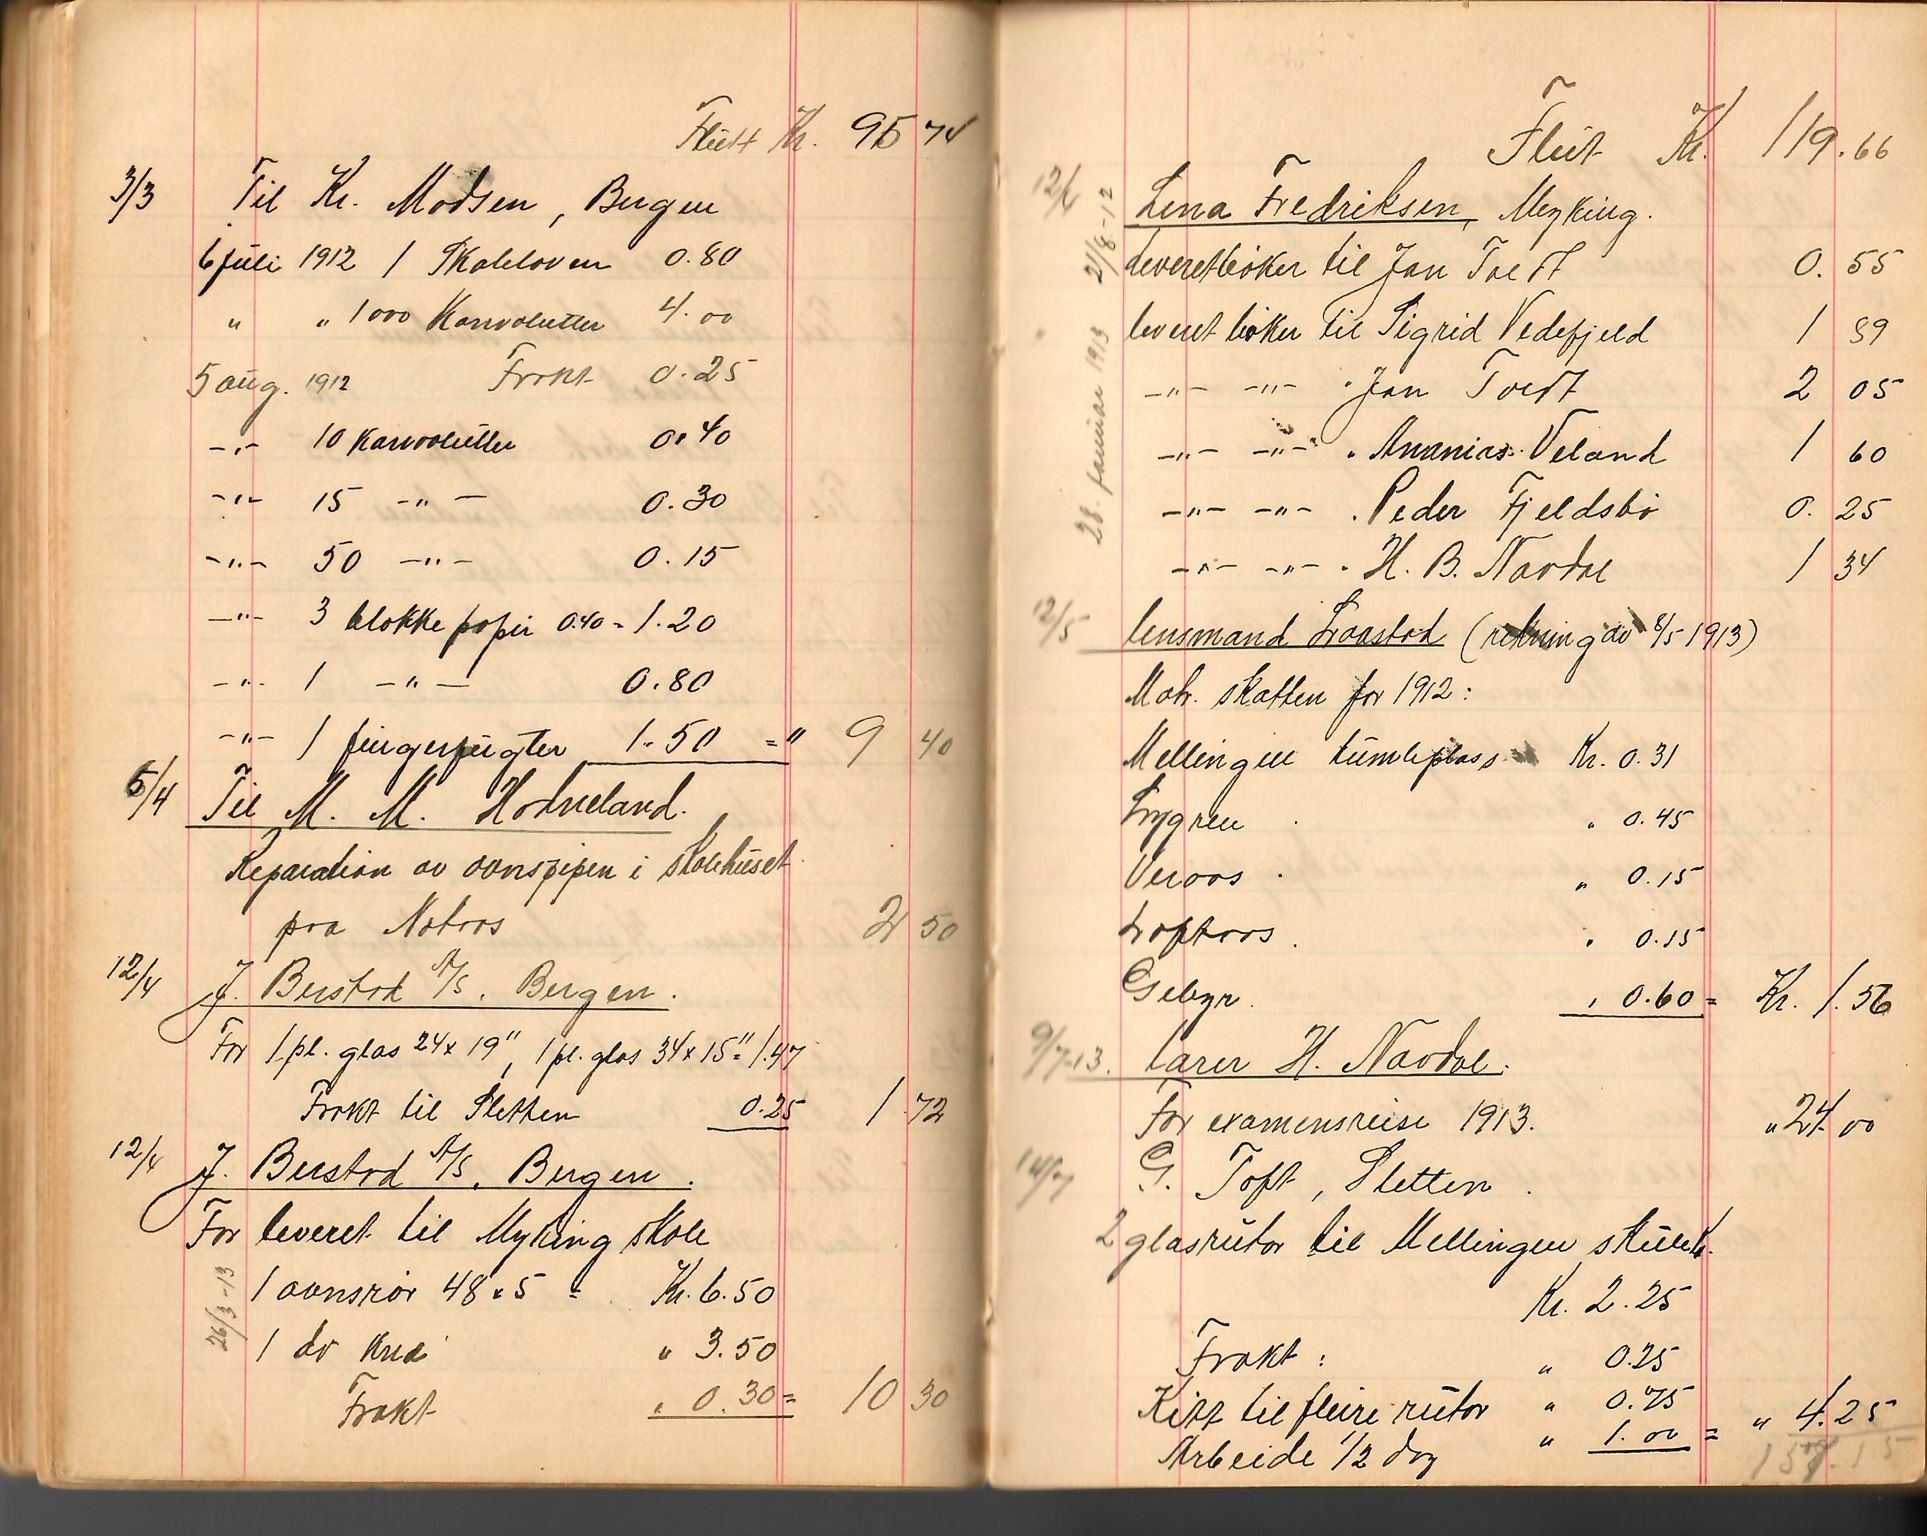 Flutt Kr. 95 74
3/3 Til Kr. Madsen, Bergen
6 juli 1912 1 Skoleloven 0.80
" " 1000 Konvolutter 4.00
5 aug. 1912 Frakt 0.25
-"- 10 Konvolutter 0.40
-"- 15 -"- 0.30
-"- 50 -"- 0.15
-"- 3 blokke papir 0.40 = 1.20
-"- 1 -"- 0.80
-"- 1 fingerfugter 1.50 = " 9 40
5/4 Til M. M. Hodneland.
Reparation av ovnspipen i skolehuset
paa Notraas 2 50
12/4 J. Berstad A/S. Bergen.
For 1 pl. glas 24 x 19", 1 pl. glas 34 x 15" = 1.47
Frakt til Sletten 0.25 1 72
12/4 J. Berstad A/S. Bergen.
For leveret til Myking skole
26/3-13
1 ovnsrør 48 x 5 = Kr. 6.50
1 do kne " 3.50
Frakt " 0.30 = 10 30
Flut Kr. 119.66
12/4 Lena Fredriksen, Myking.
21/8-12 leveret bøker til Jan Toedt 0. 55
28. januar 1913
leveret bøker til Sigrid Vedefjeld 1 89
-"- -"- " Jan Toedt 2 05
-"- -"- " Ananias Veland 1 60
-"- -"- " Peder Fjeldsbø 0. 25
-"- -"- " H. B. Navdal 1 34
12/5 lensmand Loostad (rekning av 8/5 1913)
Matr. skatten for 1912:
Mellingen tumleplass Kr. 0.31
Lygren " 0.45
Veraas " 0.15
Loftaas " 0.15
Gebyr. " 0.60 = Kr. 1.56
9/7-13. lærer H. Navdal.
For examensreise 1913. " 24.00
14/7 G. Toft, Sletten.
2 glasrutor til Mellingen skuleh.
Kr. 2.25
Frakt: " 0.25
Kitt til fleire rutor " 0.75
Arbeide 1/2 dag " 1.00 = " 4.25